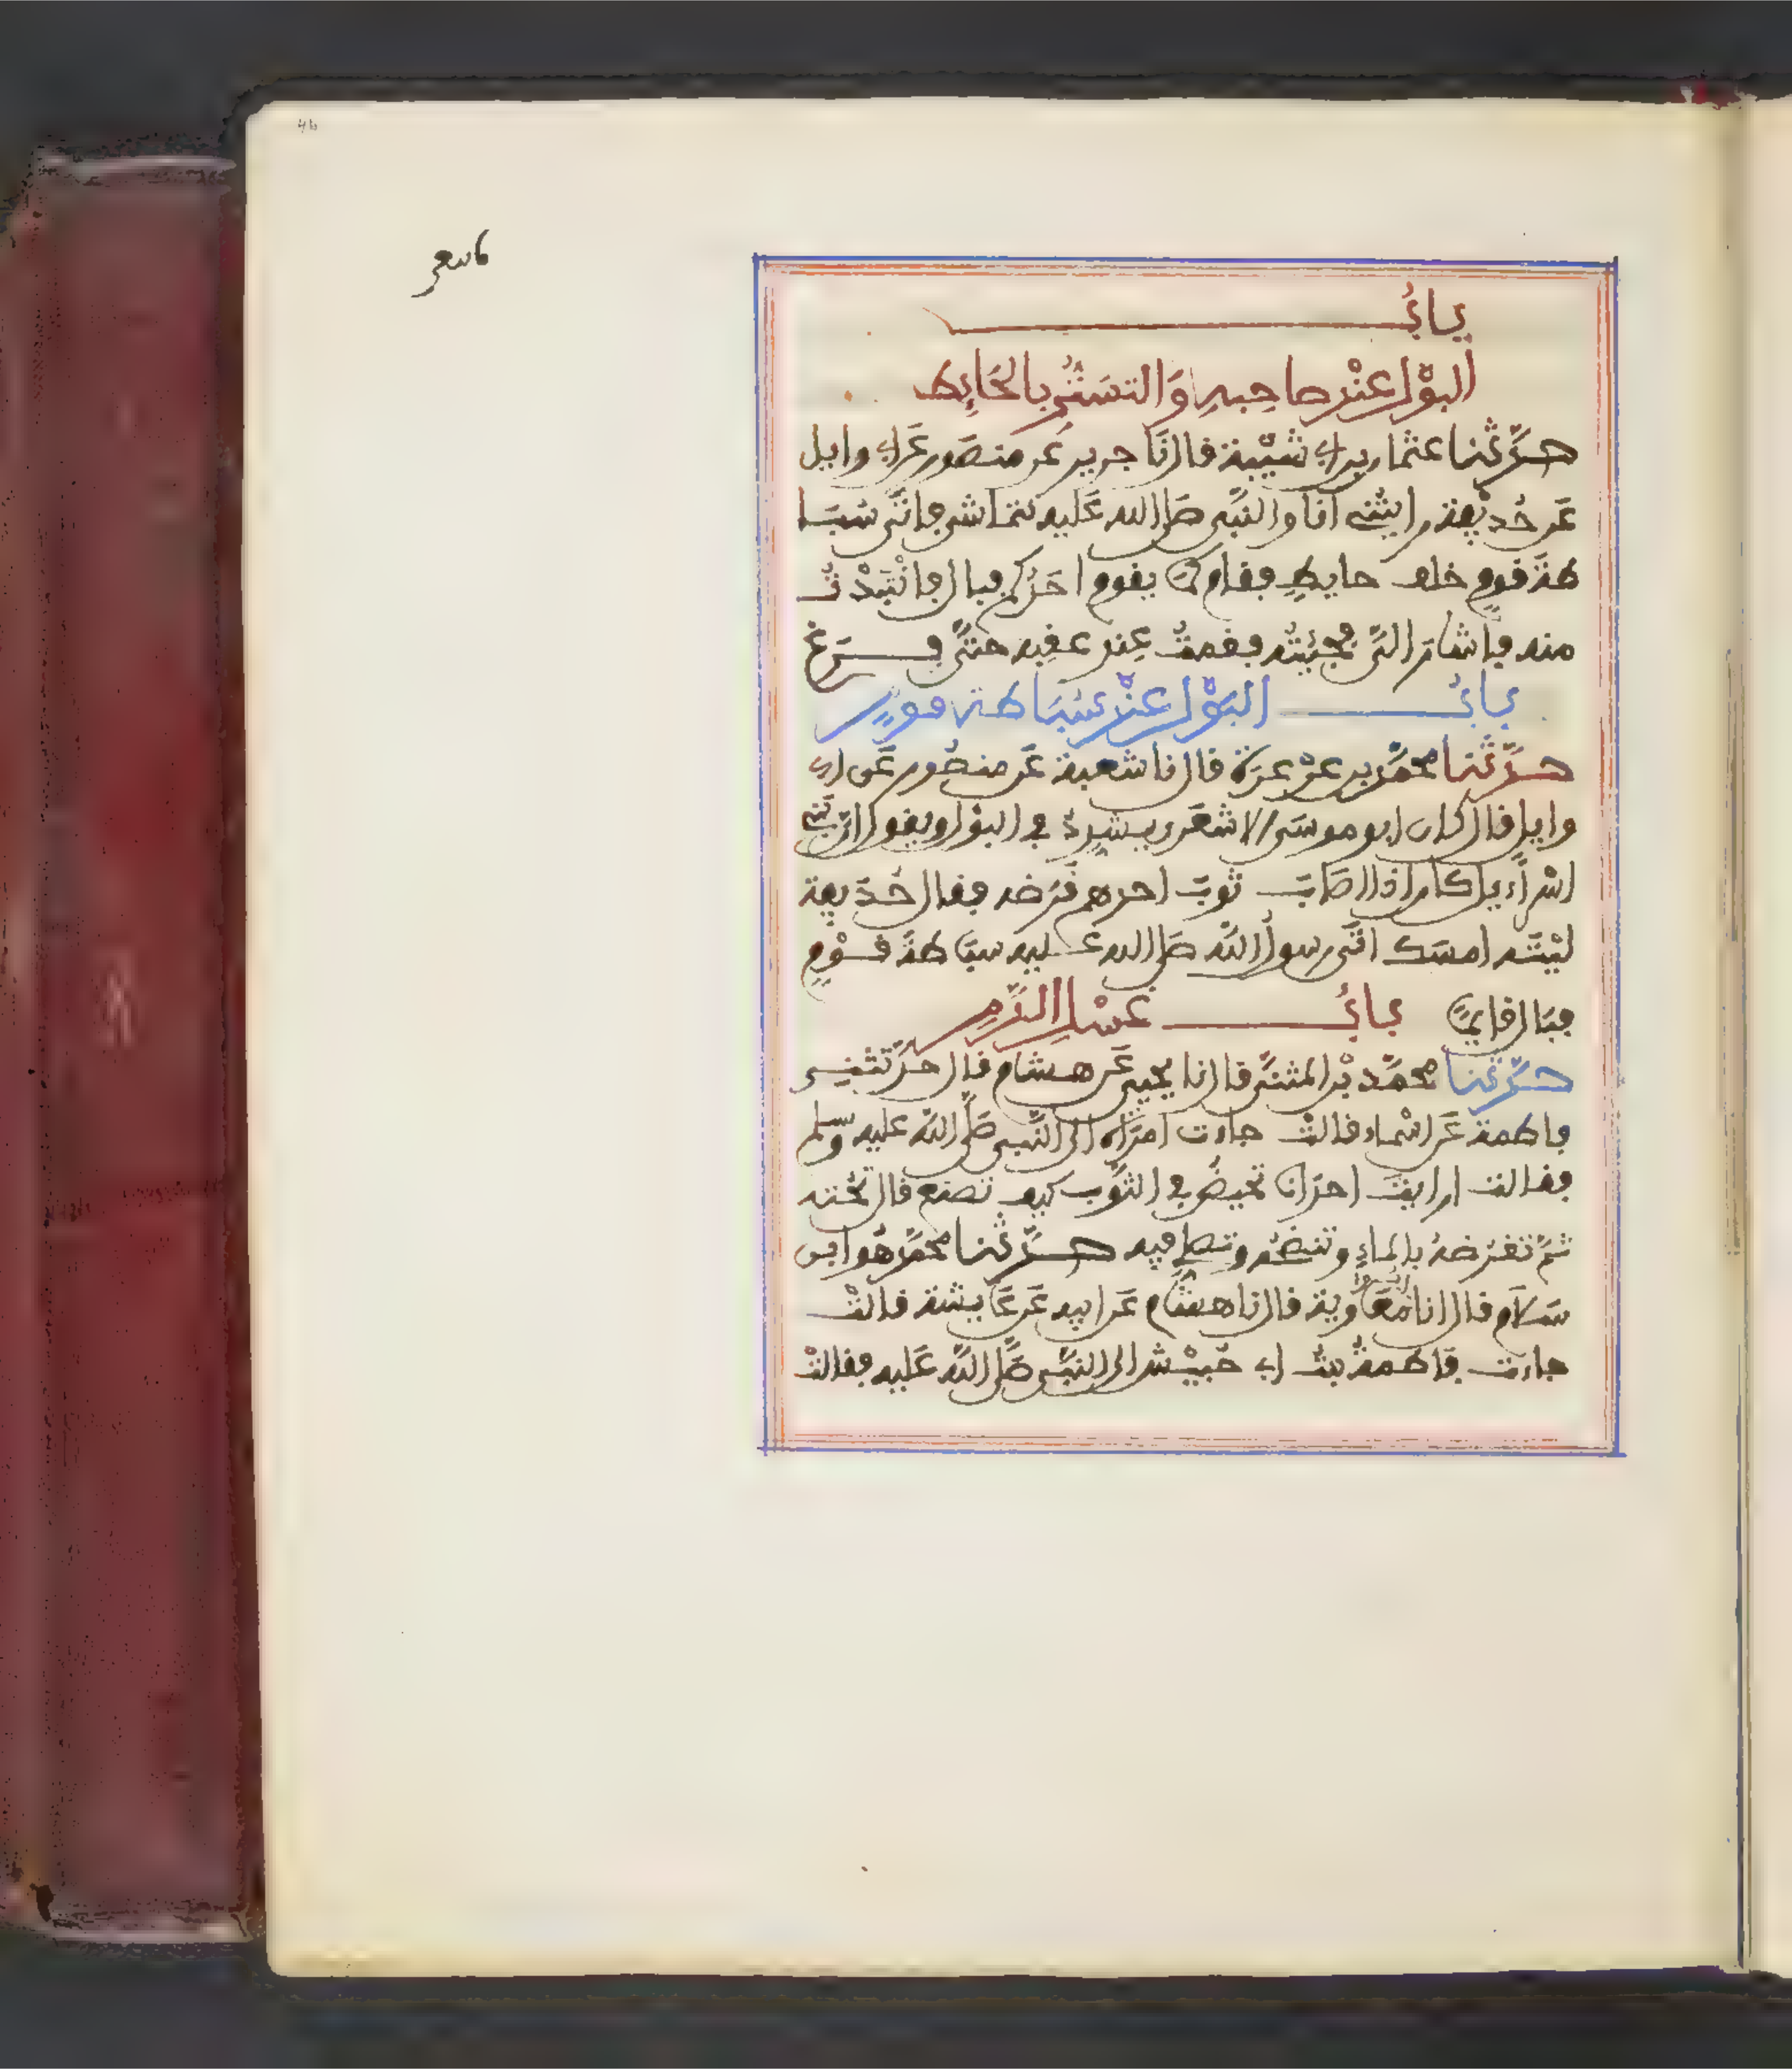 باب
البَوْلِ عِنْدَ صَاحِبِهِ وَالتَّسَتُّرِ بِالحَائِطِ
حدّثنا عثمان بن ابي شَيْبة قال نَا جرير عَن منصَور عَن ابي وايل
عَن حُذيْفة رايتُنِي انا والنَّبِي صَلى الله عَليه نتماشى فاتَى سُبَا
طةَ قومٍ خلف حايطٍ فقام كما يقوم احَدُكم فبال فانْتَبَذْتُ
منه فاَشار التَّى فجِئتُه فقمتُ عِند عقِبه حتَّى فرغ
باب البَوْلِ عنْدَ سُبَاطة قومٍ
حدّثنا محمّد بن عرْعرَة قال نا شعبة عَن منصُور عَن ابي
وايل قال كان ابو موسَى الاشعَرى يشدِّدُ في البوْل ويقول انّ بَنِي
اسْرآءيل كان اذا اصَابَ ثوبَ احدهم قرَضه فقال حُذَيفة
ليْتَه امسَك اتَى رسولُ اللَّه صَلى الله عليه سبَاطةَ قوْمٍ
فبَال قايمًا باب غسْلِ الدَّمِ
حدّثنا محمّد بْن المثنَّى قال نا يحيى عَن هشام قال حدّثتنِى
فاطمة عَن اسْماء قالتْ جاءت امرَاة الى النَّبِى صَلَّى اللَّه عليه وسّلم
فقالت ارايتَ احدَانا تحيضُ في الثوْب كيف تصنع قال تحُتّه
ثمَّ تقرُضهُ بالماءِ وتنضَحُه وتصلِى فِيه حدّثنا محمّد هُو ابن
سَلاَم قال انا ابو مُعَاوية قال نا هشَام عَن ابيه عَن عَايشة قالتْ
جاءت فَاطمةُ بنتُ ابي حُبيْش الى النَّبِى صَلَّى اللَّه عَليه فقالتْ